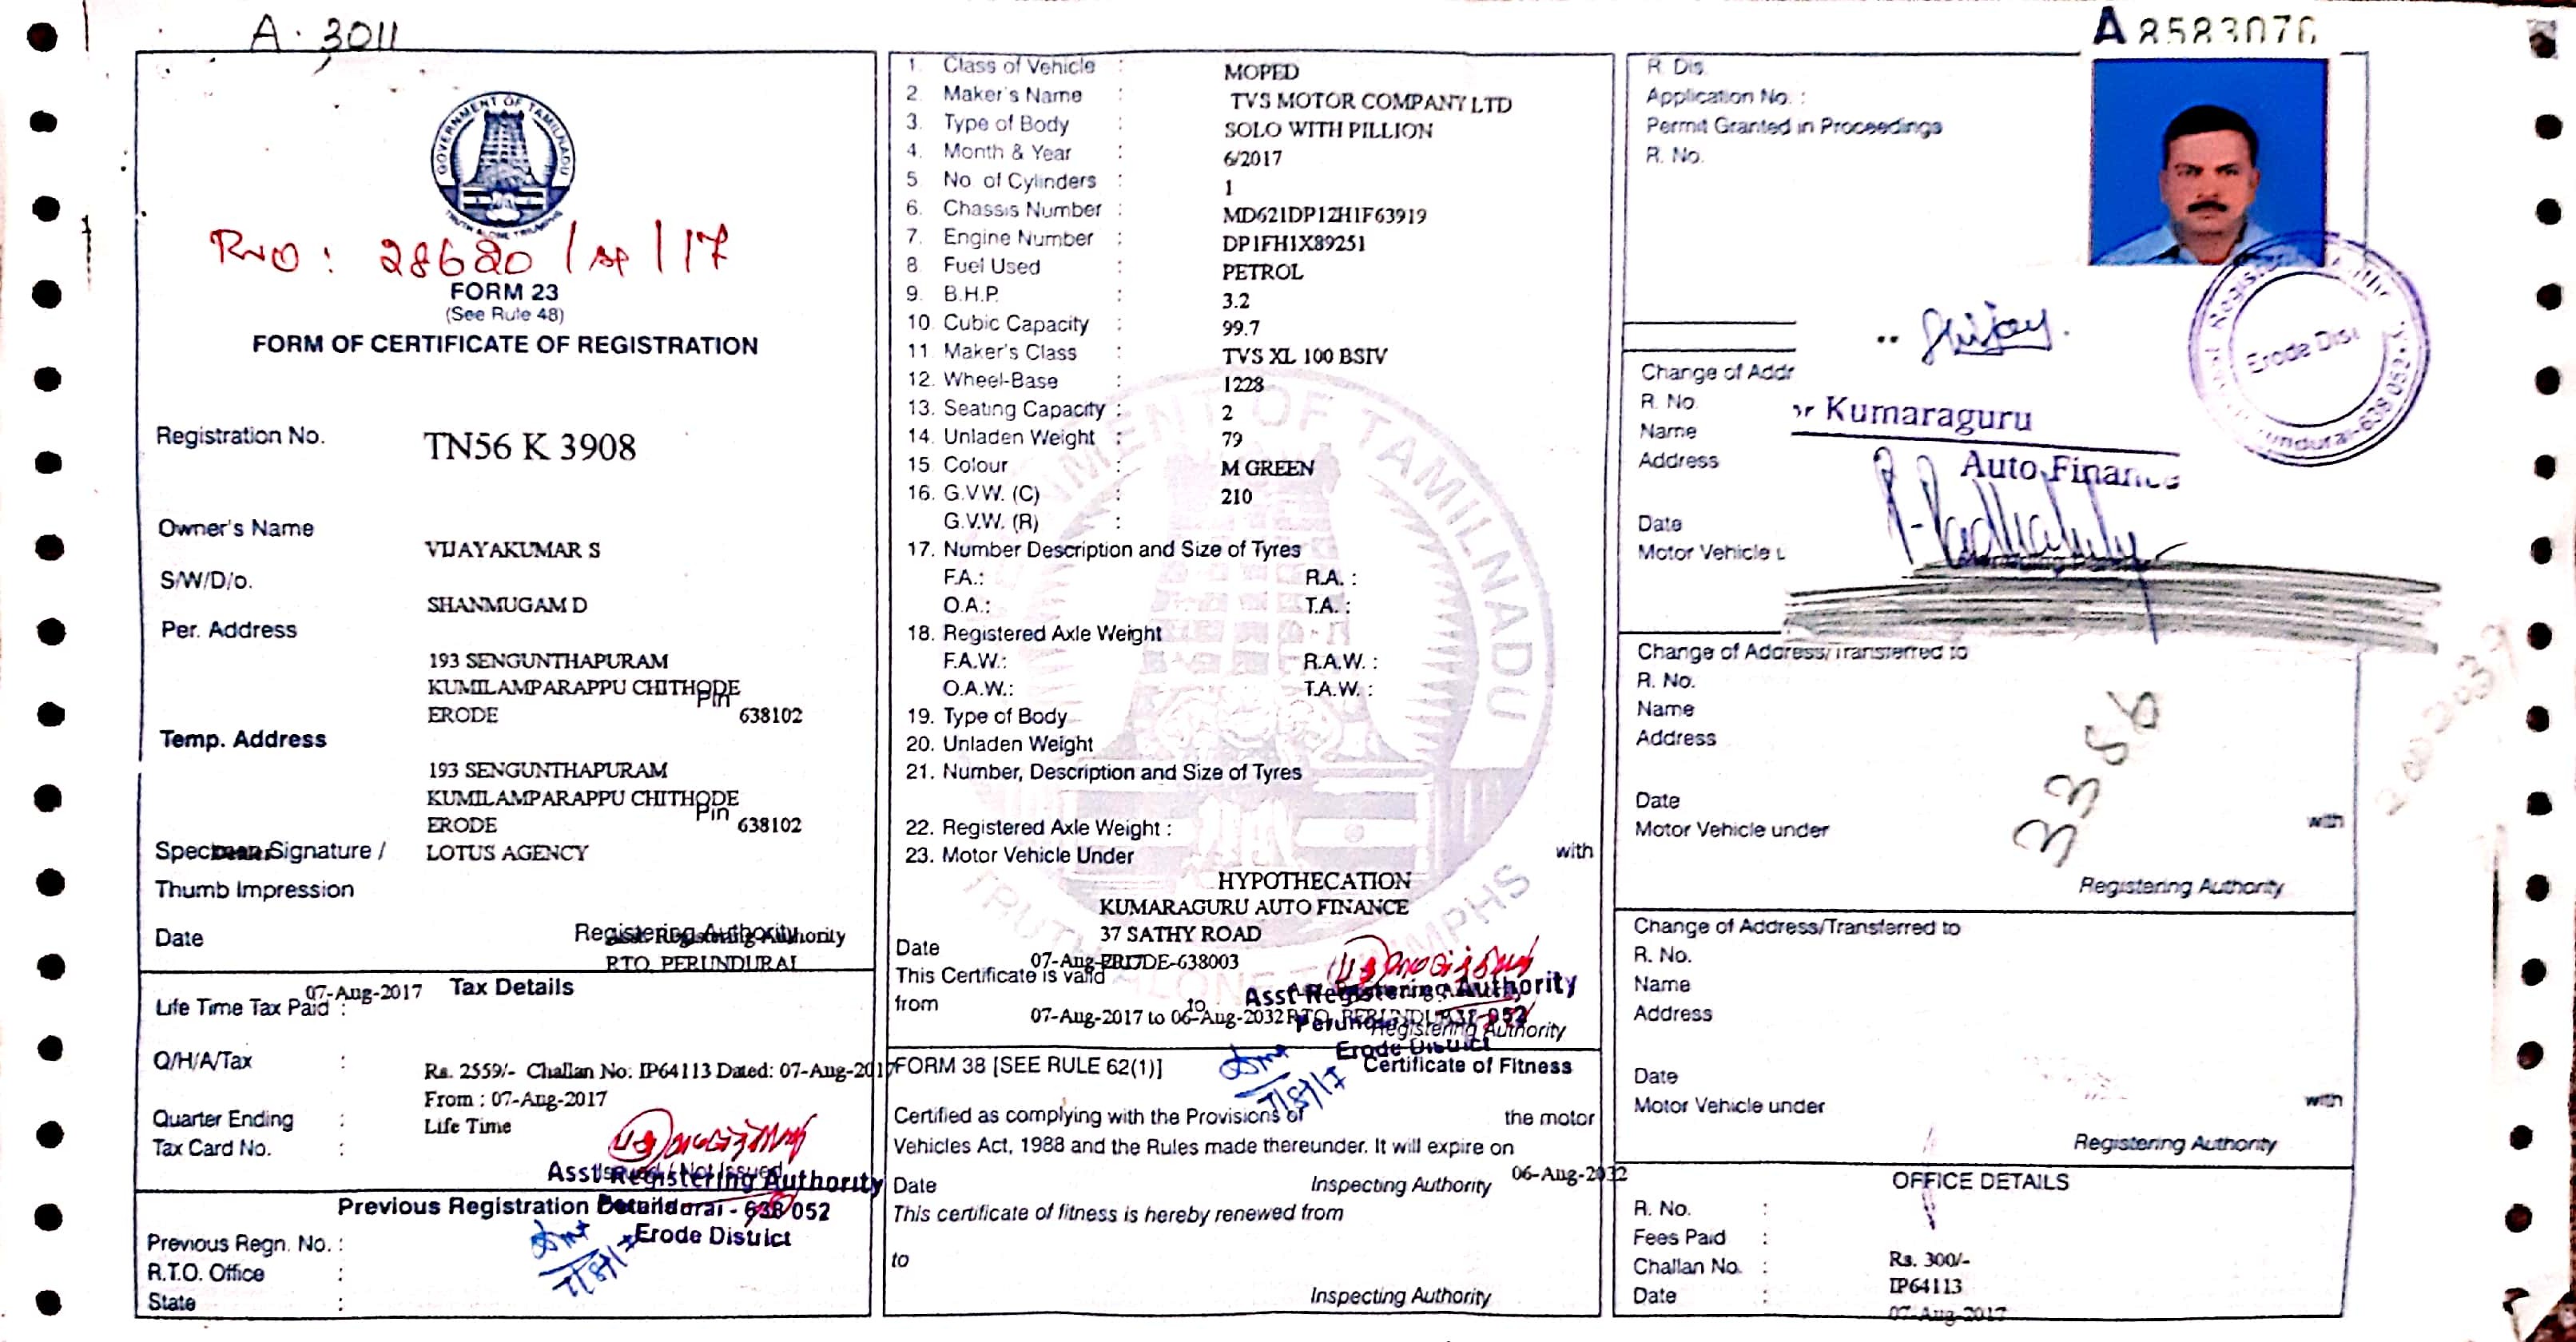 A. 3011
GOVERNMENT OF TAMILNADU
TRUTH ALONE TRIUMPHS
RNO: 28620/AP/17
FORM 23
(See Rule 48)
FORM OF CERTIFICATE OF REGISTRATION
Registration No. TN56 K 3908
Owner's Name
VIJAYAKUMAR S
S/W/D/o.
SHANMUGAM D
Per. Address
193 SENGUNTHAPURAM
KUMILAMPARAPPU CHITHODE
ERODE Pin 638102
Temp. Address
193 SENGUNTHAPURAM
KUMILAMPARAPPU CHITHODE
ERODE Pin 638102
Specimen Signature / LOTUS AGENCY
Thumb Impression
Date Registering Authority
RTO, PERUNDURAI
Tax Details
Life Time Tax Paid : 07-Aug-2017
Q/H/A/Tax : Rs. 2559/- Challan No: IP64113 Dated: 07-Aug-2017
From : 07-Aug-2017
Quarter Ending : Life Time
Tax Card No. :
Issued / Not Issued
Asst Registering Authority
Previous Registration Details
Perundurai - 638 052
Erode District
Previous Regn. No. :
R.T.O. Office :
State :
7/8/17
1. Class of Vehicle : MOPED
2. Maker's Name : TVS MOTOR COMPANY LTD
3. Type of Body : SOLO WITH PILLION
4. Month & Year : 6/2017
5. No. of Cylinders : 1
6. Chassis Number : MD621DP12H1F63919
7. Engine Number : DP1FH1X89251
8. Fuel Used : PETROL
9. B.H.P. : 3.2
10. Cubic Capacity : 99.7
11. Maker's Class : TVS XL 100 BSIV
12. Wheel-Base : 1228
13. Seating Capacity : 2
14. Unladen Weight : 79
15. Colour : M GREEN
16. G.V.W. (C) : 210
G.V.W. (R) :
17. Number Description and Size of Tyres
F.A.: R.A. :
O.A.: T.A. :
18. Registered Axle Weight
F.A.W.: R.A.W. :
O.A.W.: T.A.W. :
19. Type of Body
20. Unladen Weight
21. Number, Description and Size of Tyres
22. Registered Axle Weight :
23. Motor Vehicle Under with
HYPOTHECATION
KUMARAGURU AUTO FINANCE
37 SATHY ROAD
ERODE-638003
Date 07-Aug-2017
This Certificate is valid
from 07-Aug-2017 to 06-Aug-2032
RTO, PERUNDURAI
Registering Authority
Asst Registering Authority
Perundurai - 638 052
Erode District
7/8/17
FORM 38 [SEE RULE 62(1)] Certificate of Fitness
Certified as complying with the Provisions of the motor
Vehicles Act, 1988 and the Rules made thereunder. It will expire on
06-Aug-2032
Date Inspecting Authority
This certificate of fitness is hereby renewed from
to
Inspecting Authority
GOVERNMENT OF TAMILNADU
TRUTH ALONE TRIUMPHS
A 8583076
R. Dis.
Application No. :
Permit Granted in Proceedings
R. No.
Erode Dist
Change of Addr
R. No.
Name
Address
Date
Motor Vehicle u
Kumaraguru
Auto Finance
Change of Address/Transferred to
R. No.
Name
Address
Date
Motor Vehicle under with
Registering Authority
3386
Change of Address/Transferred to
R. No.
Name
Address
Date
Motor Vehicle under with
Registering Authority
OFFICE DETAILS
R. No. :
Fees Paid : Rs. 300/-
Challan No. : IP64113
Date : 07-Aug-2017